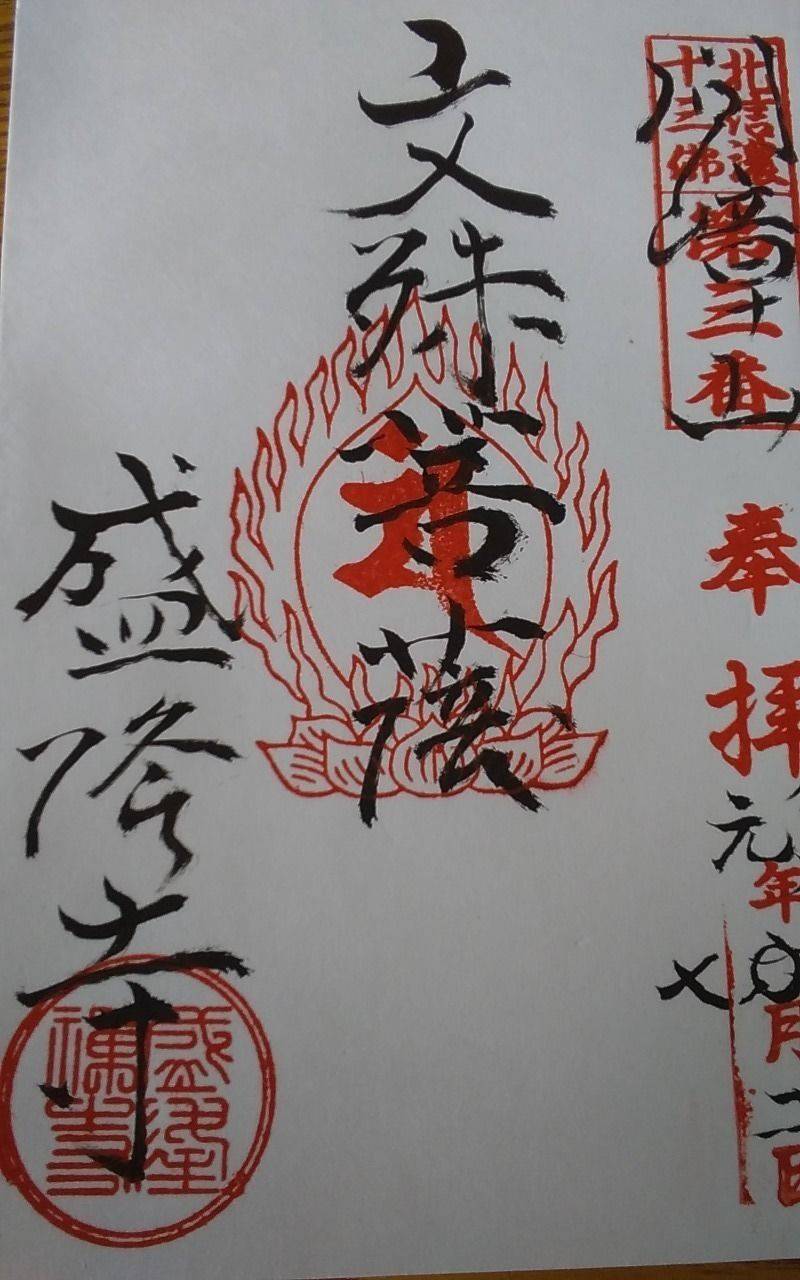 北信濃
十三佛
第三番
奉拝
元年
月二日
文殊菩薩
盛隆寺
盛隆
禅寺